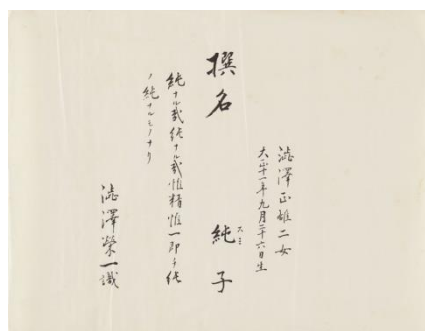 澁澤正雄二女
大正十一年九月二十六日生
撰名 純子
スミ
純ナル哉純ナル哉惟精惟一即チ純
ノ純ナルモノナリ
澁澤榮一識